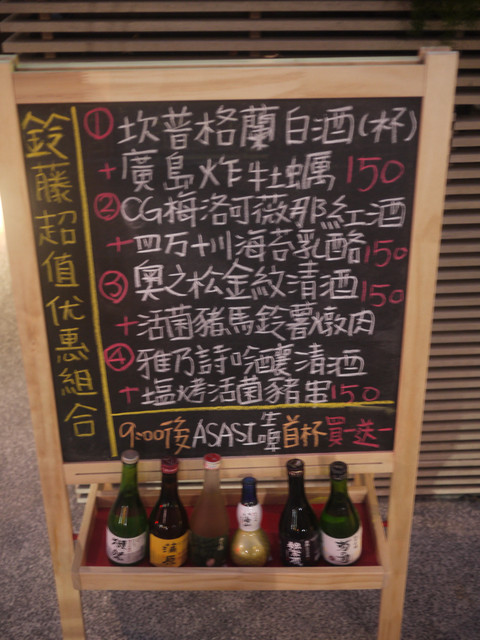 鈴藤超值优惠組合
①坎普格蘭白酒(杯)
+廣島炸牡蠣150
②CG梅洛可薇那紅酒
+四万十川海苔乳酪150
③奧之松金紋清酒150
+活菌豬馬鈴薯燉肉
④雅乃詩吟釀清酒
+塩烤活菌豬串150
9:00後ASASI生啤首杯買一送一